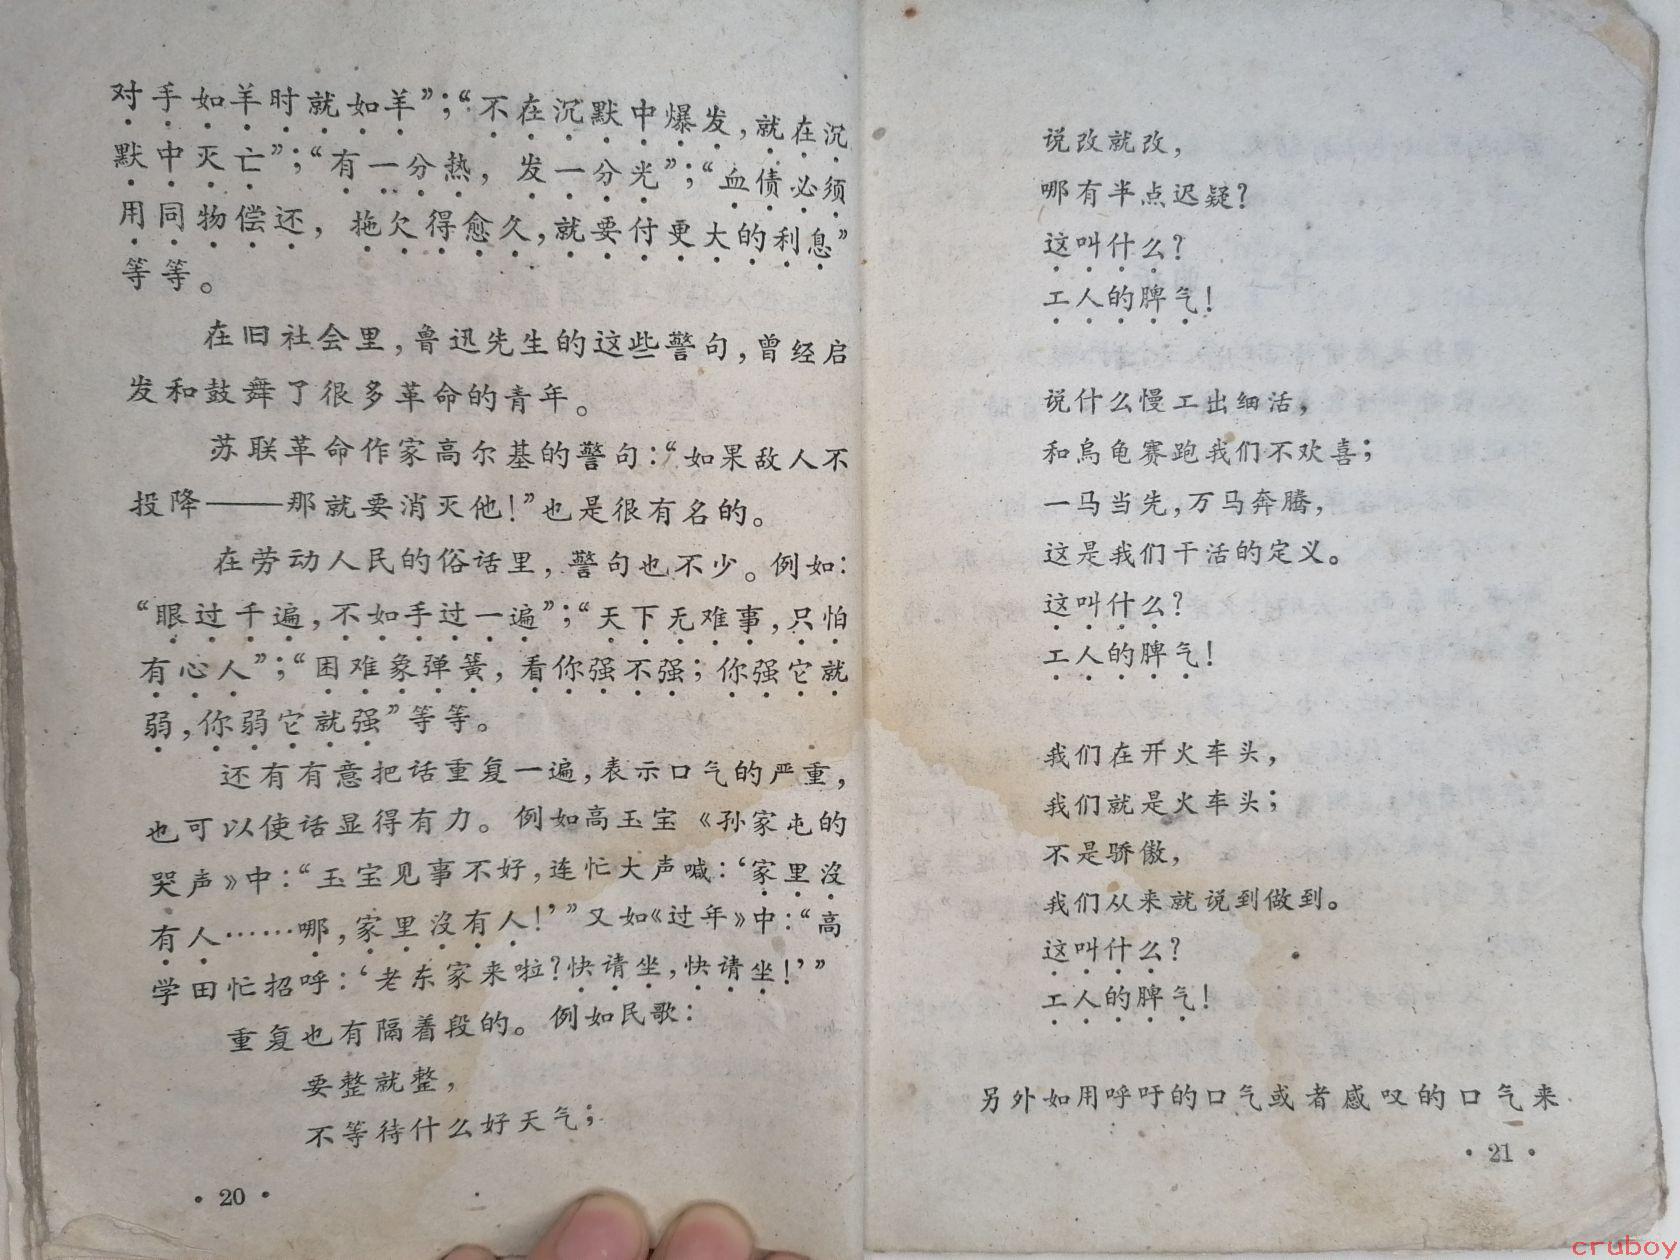 对手如羊时就如羊”；“不在沉默中爆发，就在沉
默中灭亡”；“有一分热，发一分光”；“血债必须
用同物偿还，拖欠得愈久，就要付更大的利息”
等等。
在旧社会里，鲁迅先生的这些警句，曾经启
发和鼓舞了很多革命的青年。
苏联革命作家高尔基的警句：“如果敌人不
投降——那就要消灭他！”也是很有名的。
在劳动人民的俗话里，警句也不少。例如：
“眼过千遍，不如手过一遍”；“天下无难事，只怕
有心人”；“困难象弹簧，看你强不强；你强它就
弱，你弱它就强”等等。
还有有意把话重复一遍，表示口气的严重，
也可以使话显得有力。例如高玉宝《孙家屯的
哭声》中：“玉宝见事不好，连忙大声喊：‘家里沒
有人……哪，家里沒有人！’”又如《过年》中：“高
学田忙招呼：‘老东家来啦？快请坐，快请坐！’”
重复也有隔着段的。例如民歌：
要整就整，
不等待什么好天气；
· 20 ·
说改就改，
哪有半点迟疑？
这叫什么？
工人的脾气！
说什么慢工出细活，
和烏龟赛跑我们不欢喜；
一马当先，万马奔腾，
这是我们干活的定义。
这叫什么？
工人的脾气！
我们在开火车头，
我们就是火车头；
不是骄傲，
我们从来就说到做到。
这叫什么？
工人的脾气！
另外如用呼吁的口气或者感叹的口气来
· 21 ·
cruboy